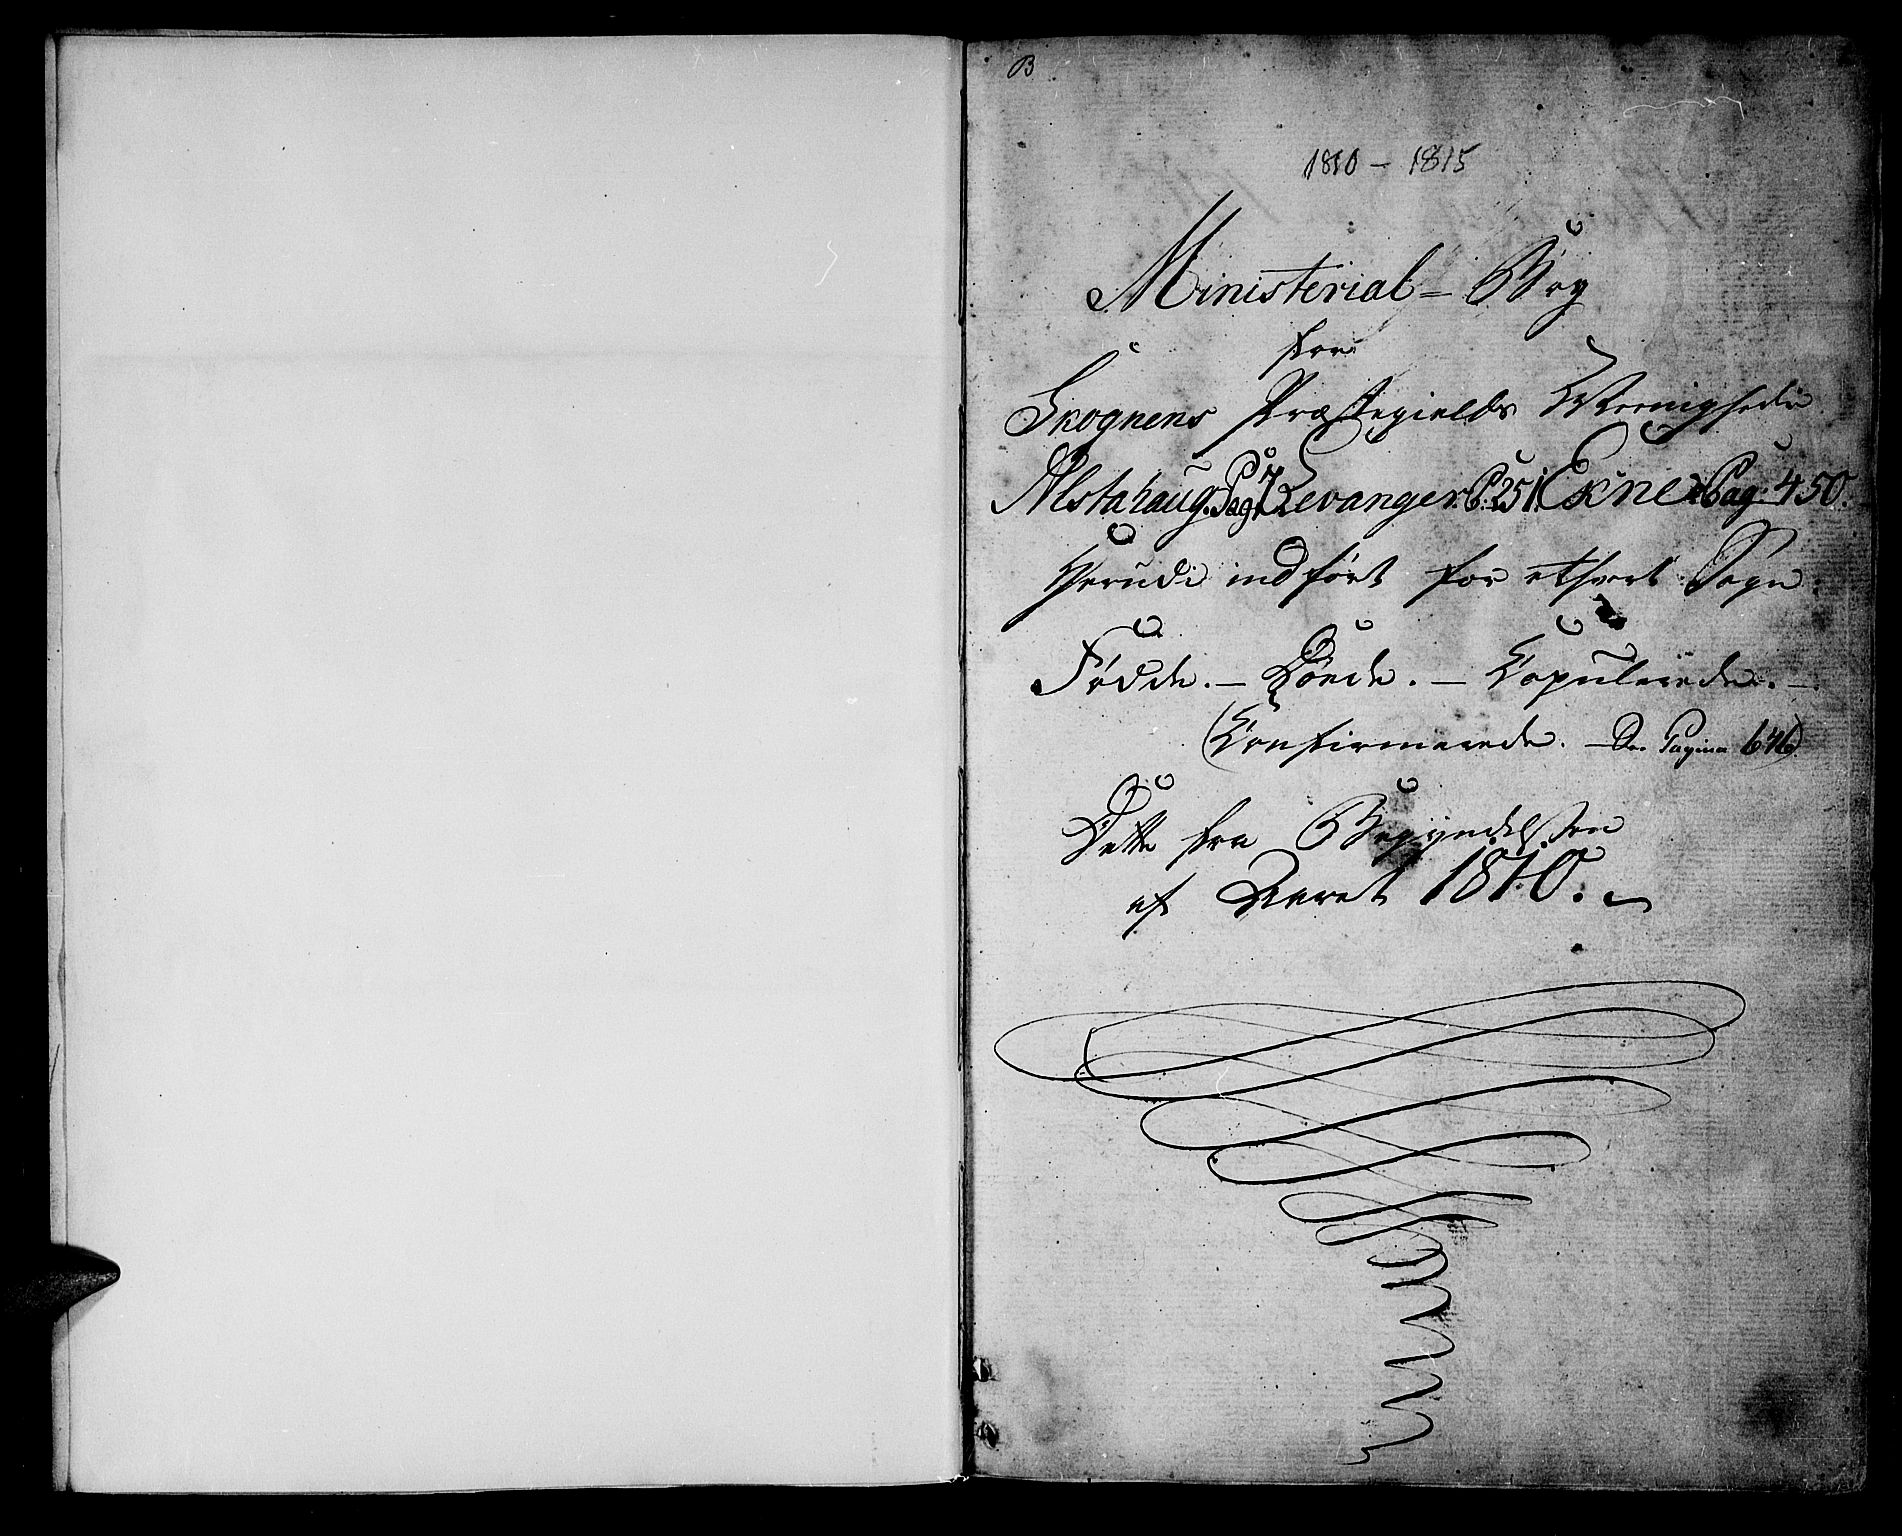 B
1810 - 1815
Ministerial = Bog
for
Skognens Præstegields Meenigheder
Alstahaug. Pag. 1 Levanger. P. 251. Ekne Pag. 450.
Herudi indført for ethvert Sogn
Fødde. — Döede. — Copulerede. —
(Confirmerede. — See Pagina 646)
Dette fra Begyndelsen
af Aaret 1810.